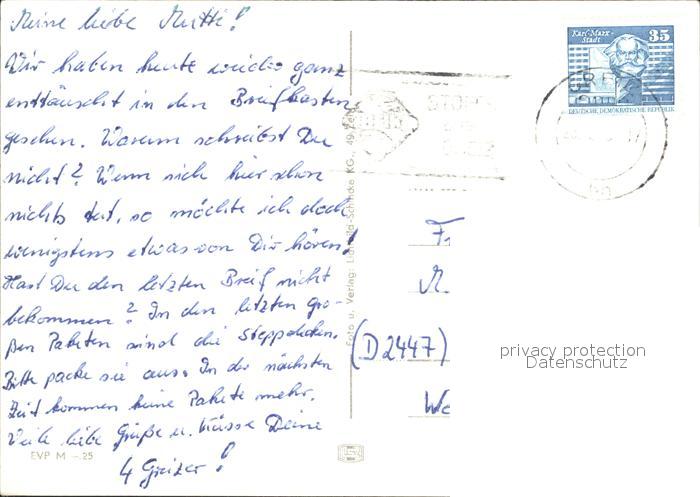 Meine liebe Mutti!
Wir haben heute wieder ganz
enttäuscht in den Briefkasten
gesehen. Warum schreibst Du
nicht? Wenn sich hier schon
nichts tut, so möchte ich doch
wenigstens etwas von Dir hören!
Hast Du den letzten Brief nicht
bekommen? In den letzten gro-
ßen Paketen sind die Steppdecken.
Bitte packe sie aus. In der nächsten
Zeit kommen keine Pakete mehr.
Viele liebe Grüße u. Küsse Deine
4 Greizer!
EVP M –.25
Foto u. Verlag:
KG.,
Karl-Marx-
Stadt
35
DEUTSCHE DEMOKRATISCHE REPUBLIK
Fr
M.
(D 2447)
We
privacy protection
Datenschutz